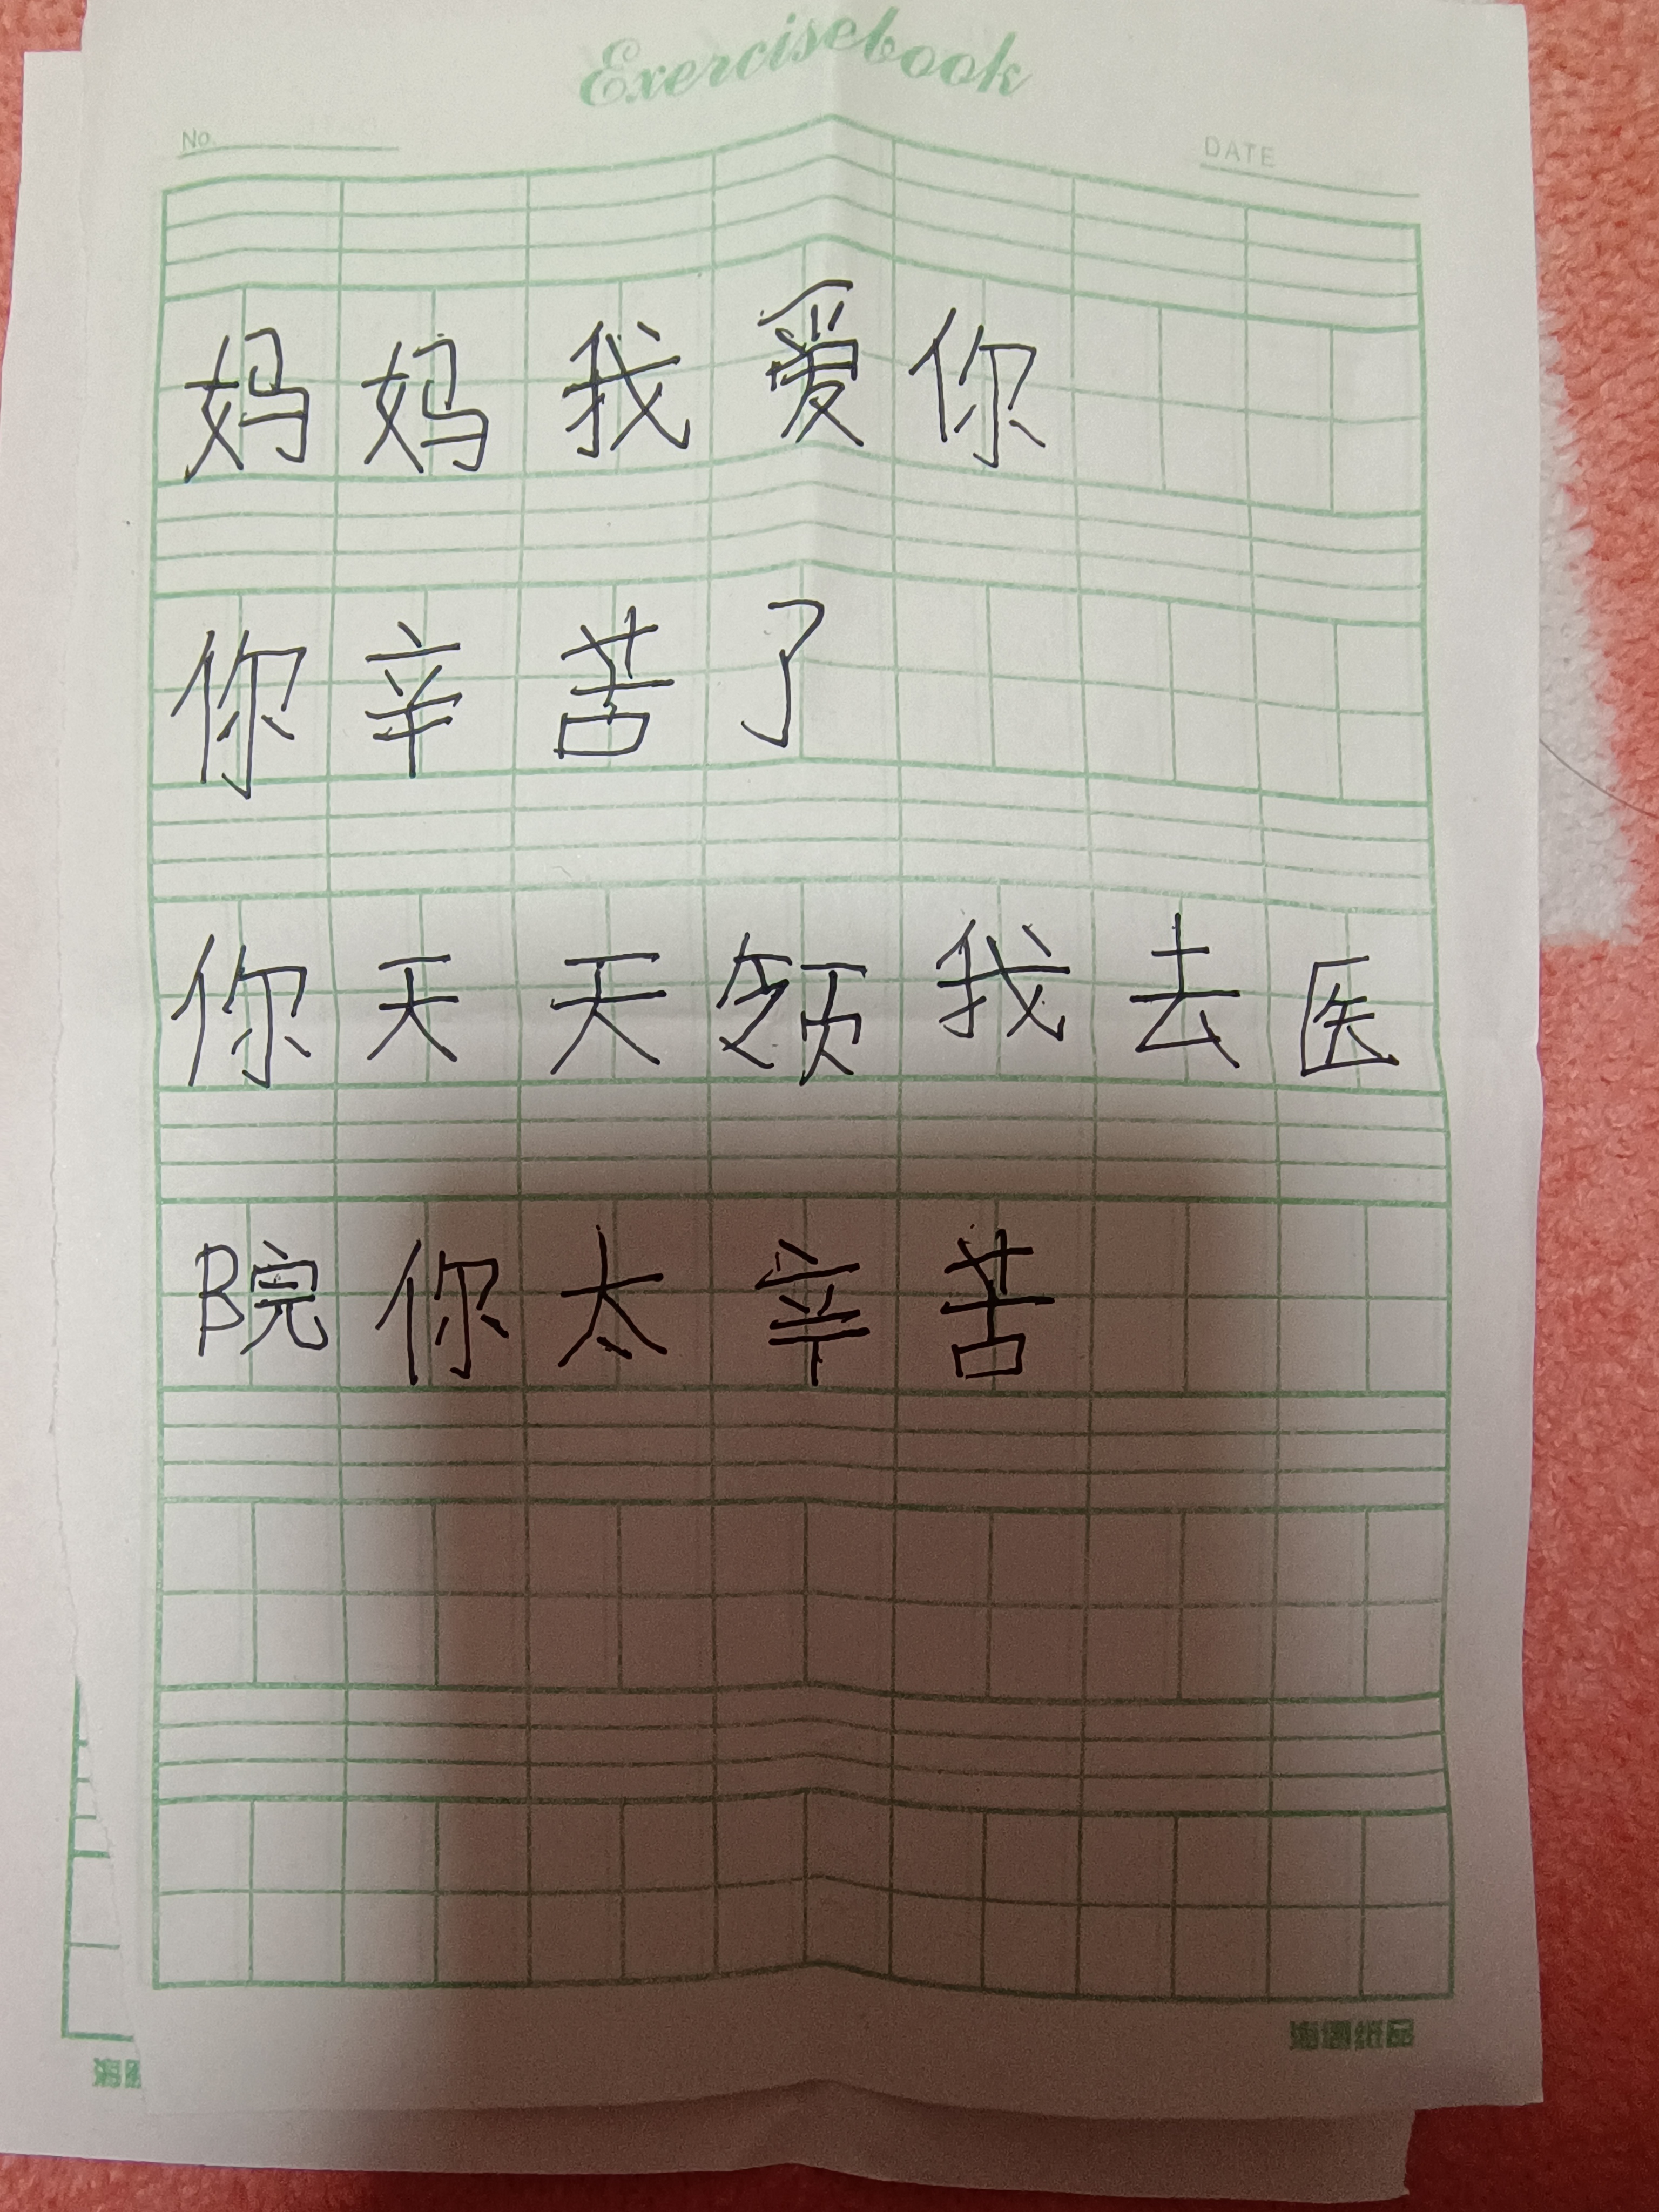 Exercisebook
No.
DATE
妈妈我爱你
你辛苦了
你天天领我去医
院你太辛苦